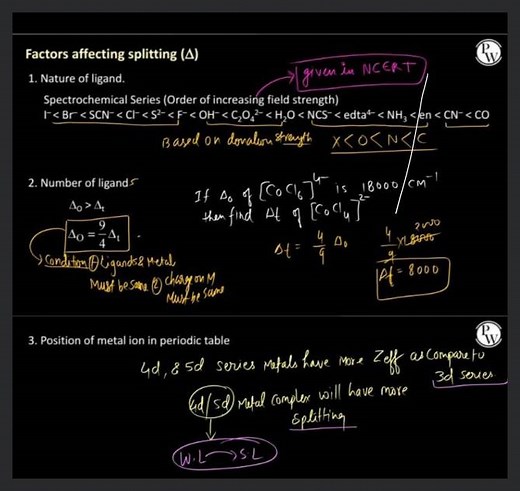 Factors affecting splitting (Δ)
PW
given in NCERT
1. Nature of ligand.
Spectrochemical Series (Order of increasing field strength)
I⁻ < Br⁻ < SCN⁻ < Cl⁻ < S²⁻ < F⁻ < OH⁻ < C₂O₄²⁻ < H₂O < NCS⁻ < edta⁴⁻ < NH₃ < en < CN⁻ < CO
Based on donation strength X<O<N<C
2. Number of ligands
If Δ₀ of [CoCl₆]⁴⁻ is 18000 cm⁻¹
then find Δt of [CoCl₄]²⁻
Δ₀ > Δₜ
Δ₀ = 9/4 Δₜ
Δt = 4/9 Δ₀
4/9 × 18000 2000
Δt = 8000
Condition ① Ligands & Metal
Must be same ② Charge on M
Must be same
PW
3. Position of metal ion in periodic table
4d, & 5d series Metals have More Zeff as Compare to
3d series
4d/5d Metal Complex will have more
splitting
W.L → S.L